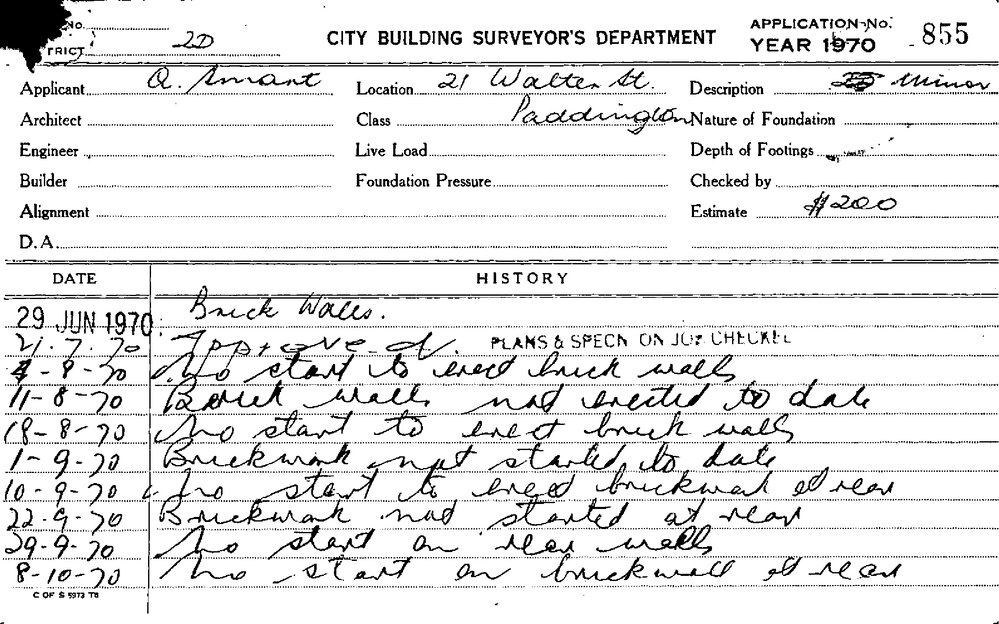 No.
TRICT 2D
CITY BUILDING SURVEYOR'S DEPARTMENT
APPLICATION No. 855
YEAR 1970
Applicant Q. Smart
Location 21 Walter St.
Description Minor
Architect
Class Paddington
Nature of Foundation
Engineer
Live Load
Depth of Footings
Builder
Foundation Pressure
Checked by
Alignment
Estimate $200
D.A.
DATE HISTORY
29 JUN 1970 Brick Walls.
21.7.70 Approved. PLANS & SPECN ON JOB CHECKED
4-8-70 No start to erect brick walls
11-8-70 Brick walls not erected to date
18-8-70 No start to erect brick walls
1-9-70 Brickwork not started to date
10-9-70 No start to erect brickwork at rear
22-9-70 Brickwork not started at rear
29-9-70 No start on rear walls
8-10-70 No start on brickwall at rear
C OF S 5973 T8